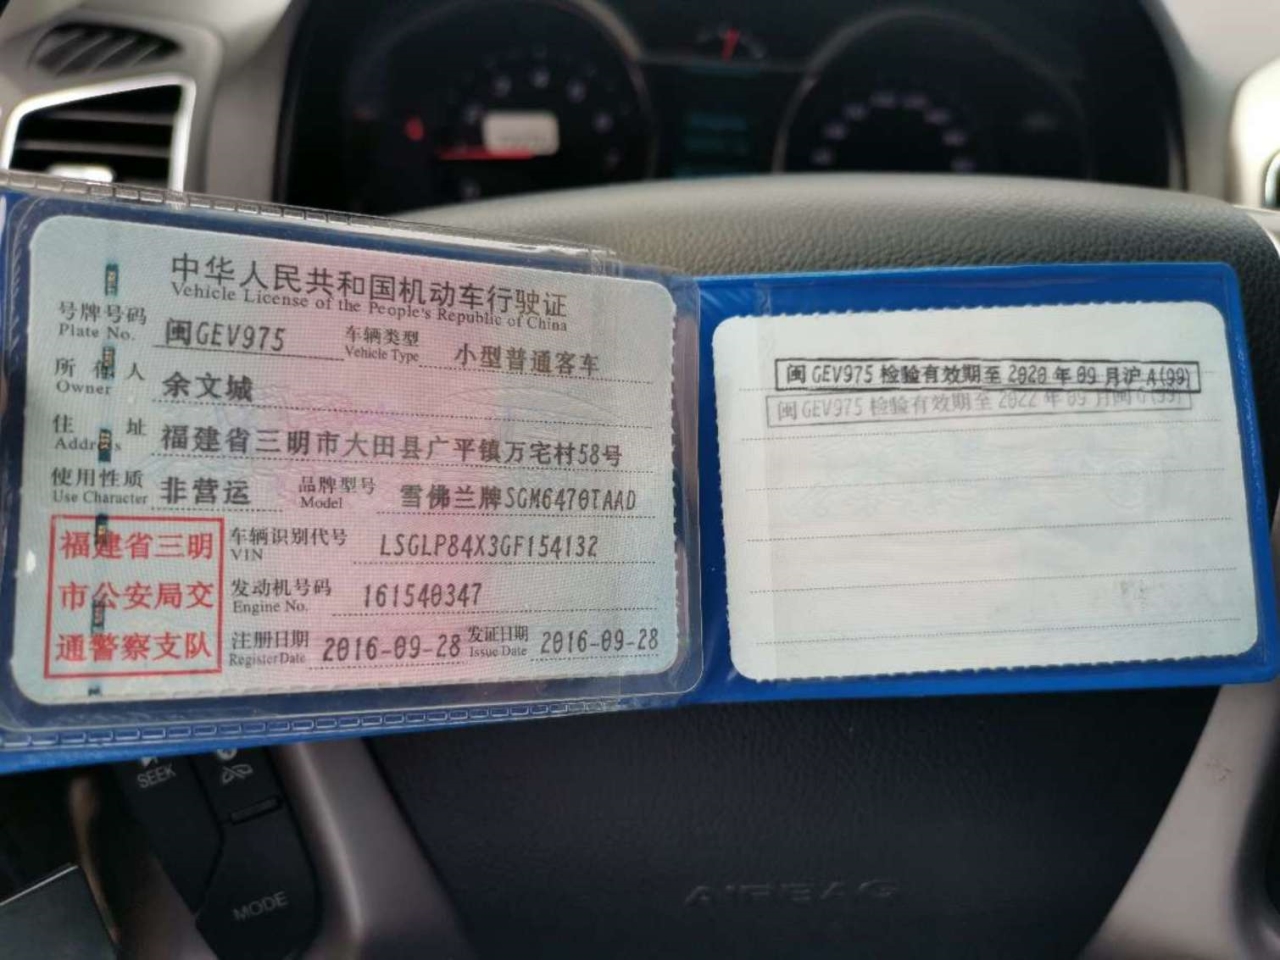 中华人民共和国机动车行驶证
Vehicle License of the People's Republic of China
号牌号码 闽GEV975 车辆类型 小型普通客车
Plate No. Vehicle Type
所有人 余文城
Owner
住址 福建省三明市大田县广平镇万宅村58号
Address
使用性质 非营运 品牌型号 雪佛兰牌SGM6470TAAD
Use Character Model
福建省三明
市公安局交
通警察支队
车辆识别代号 LSGLP84X3GF154132
VIN
发动机号码 161540347
Engine No.
注册日期 2016-09-28 发证日期 2016-09-28
Register Date Issue Date
闽GEV975 检验有效期至 2020 年 09 月沪 A(99)
闽GEV975 检验有效期至 2022 年 09 月闽 G(99)
SEEK
MODE
AIRBAG